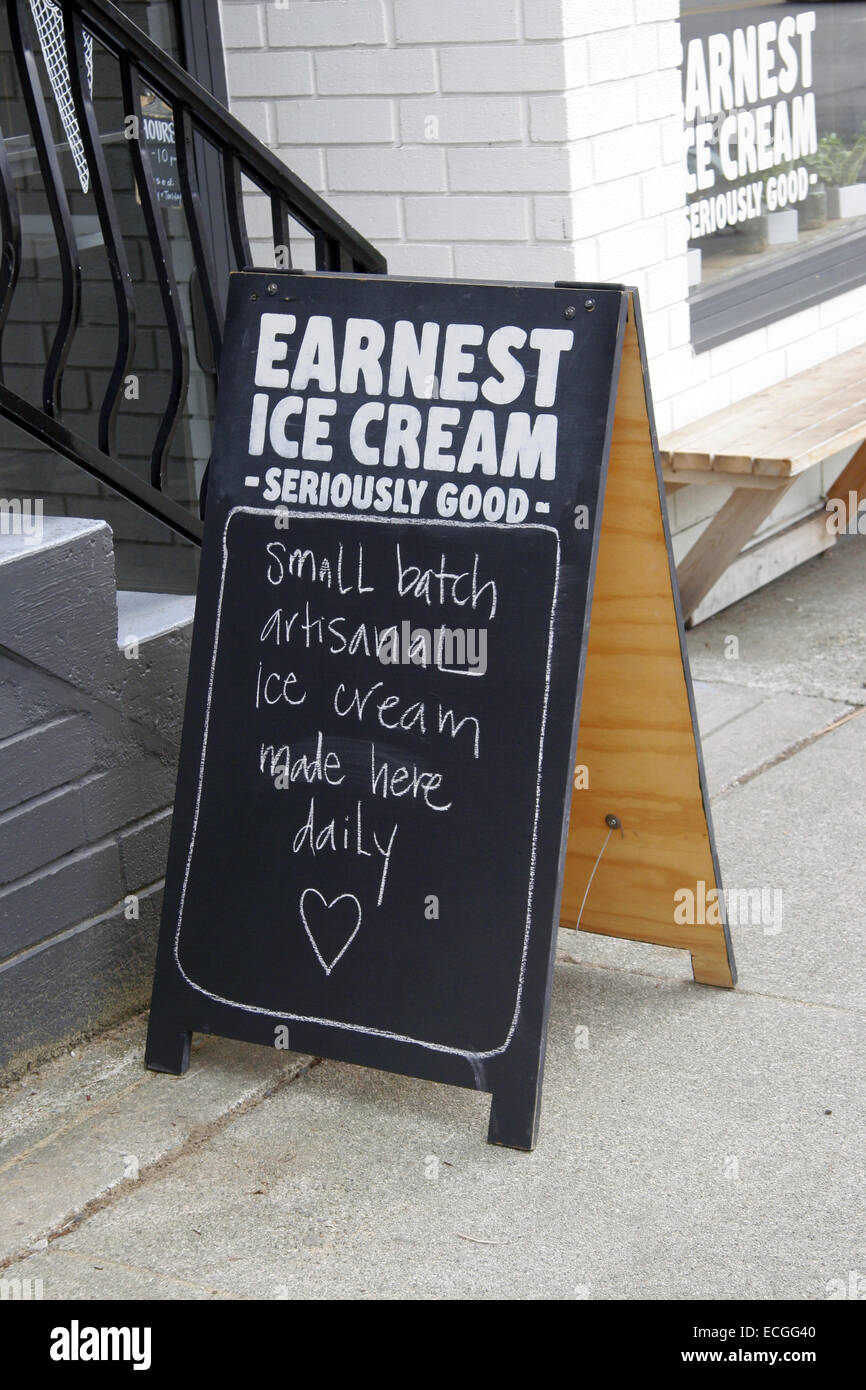 HOURS
- 10 pm
EARNEST
ICE CREAM
SERIOUSLY GOOD-
EARNEST
ICE CREAM
-SERIOUSLY GOOD-
Small batch
artisanal
ice cream
made here
daily
alamy stock photo
ECGG40
www.alamy.com